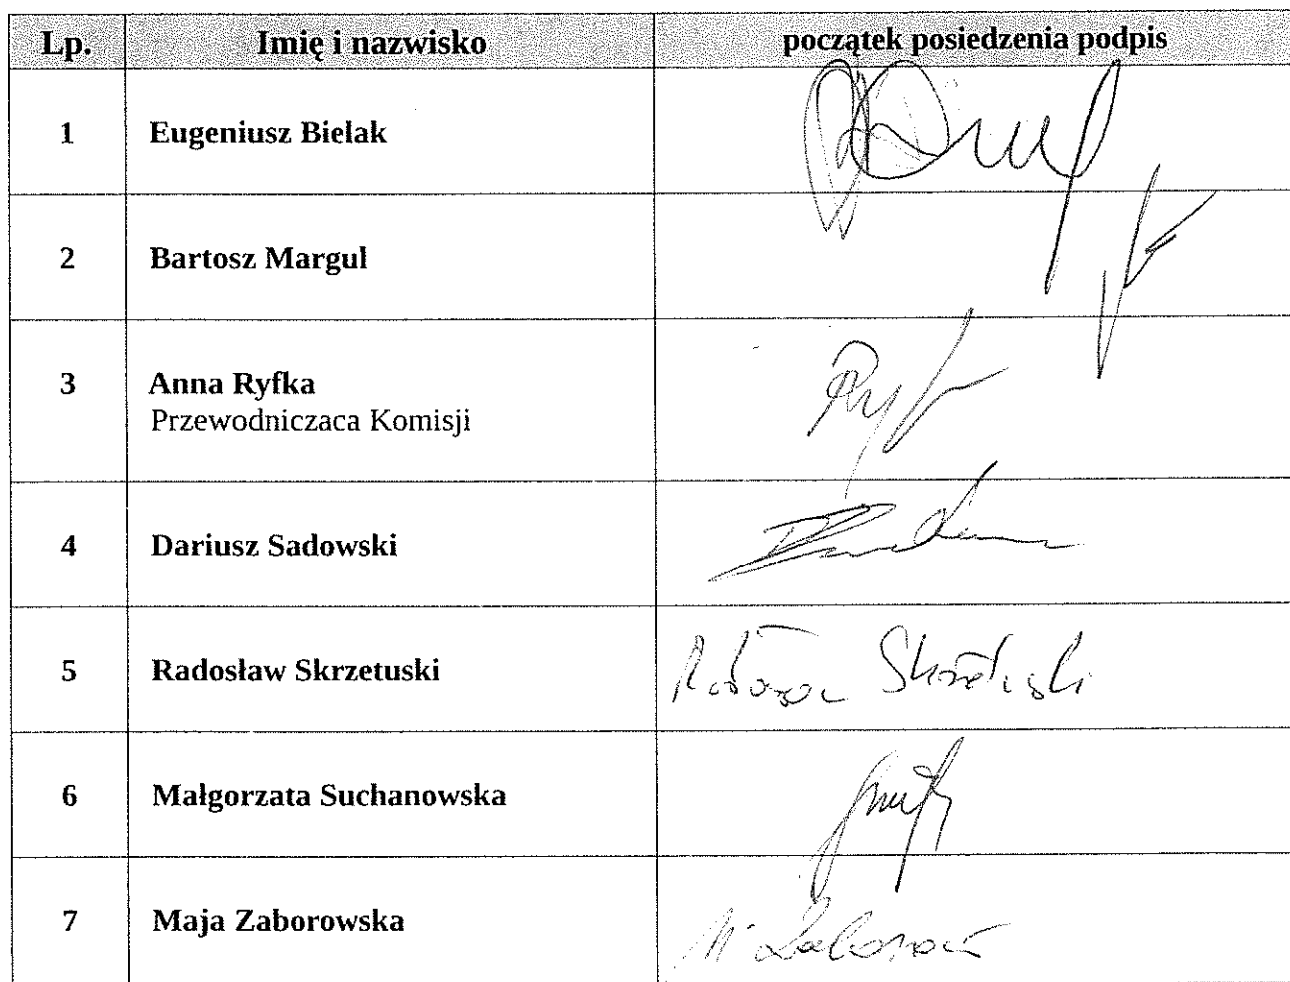 Lp. Imię i nazwisko początek posiedzenia podpis
1 Eugeniusz Bielak
2 Bartosz Margul
3 Anna Ryfka
Przewodniczaca Komisji
4 Dariusz Sadowski
5 Radosław Skrzetuski
6 Małgorzata Suchanowska
7 Maja Zaborowska